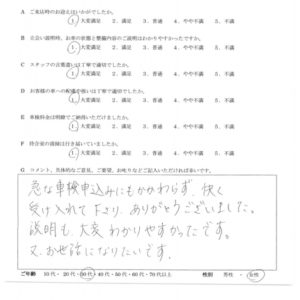 A ご来店時のお迎えはいかがでしたか。
1. 大変満足 2. 満足 3. 普通 4. やや不満 5. 不満
B 立会い説明時、お車の状態と整備内容のご説明はわかりやすかったですか。
1. 大変満足 2. 満足 3. 普通 4. やや不満 5. 不満
C スタッフの言葉遣いは丁寧で適切でしたか。
1. 大変満足 2. 満足 3. 普通 4. やや不満 5. 不満
D お客様の車への配慮や扱いは丁寧で適切でしたか。
1. 大変満足 2. 満足 3. 普通 4. やや不満 5. 不満
E 車検料金は明瞭でご納得いただけましたか。
1. 大変満足 2. 満足 3. 普通 4. やや不満 5. 不満
F 待合室の清掃は行き届いていましたか。
1. 大変満足 2. 満足 3. 普通 4. やや不満 5. 不満
G コメント、具体的なご意見、ご要望、お叱りなどご記入いただければ幸いです。
急な車検申込みにもかかわらず、快く
受け入れて下さり、ありがとうございました。
説明も、大変わかりやすかったです。
又、お世話になりたいです。
ご年齢 10代・20代・30代・40代・50代・60代・70代以上 性別 男性・女性